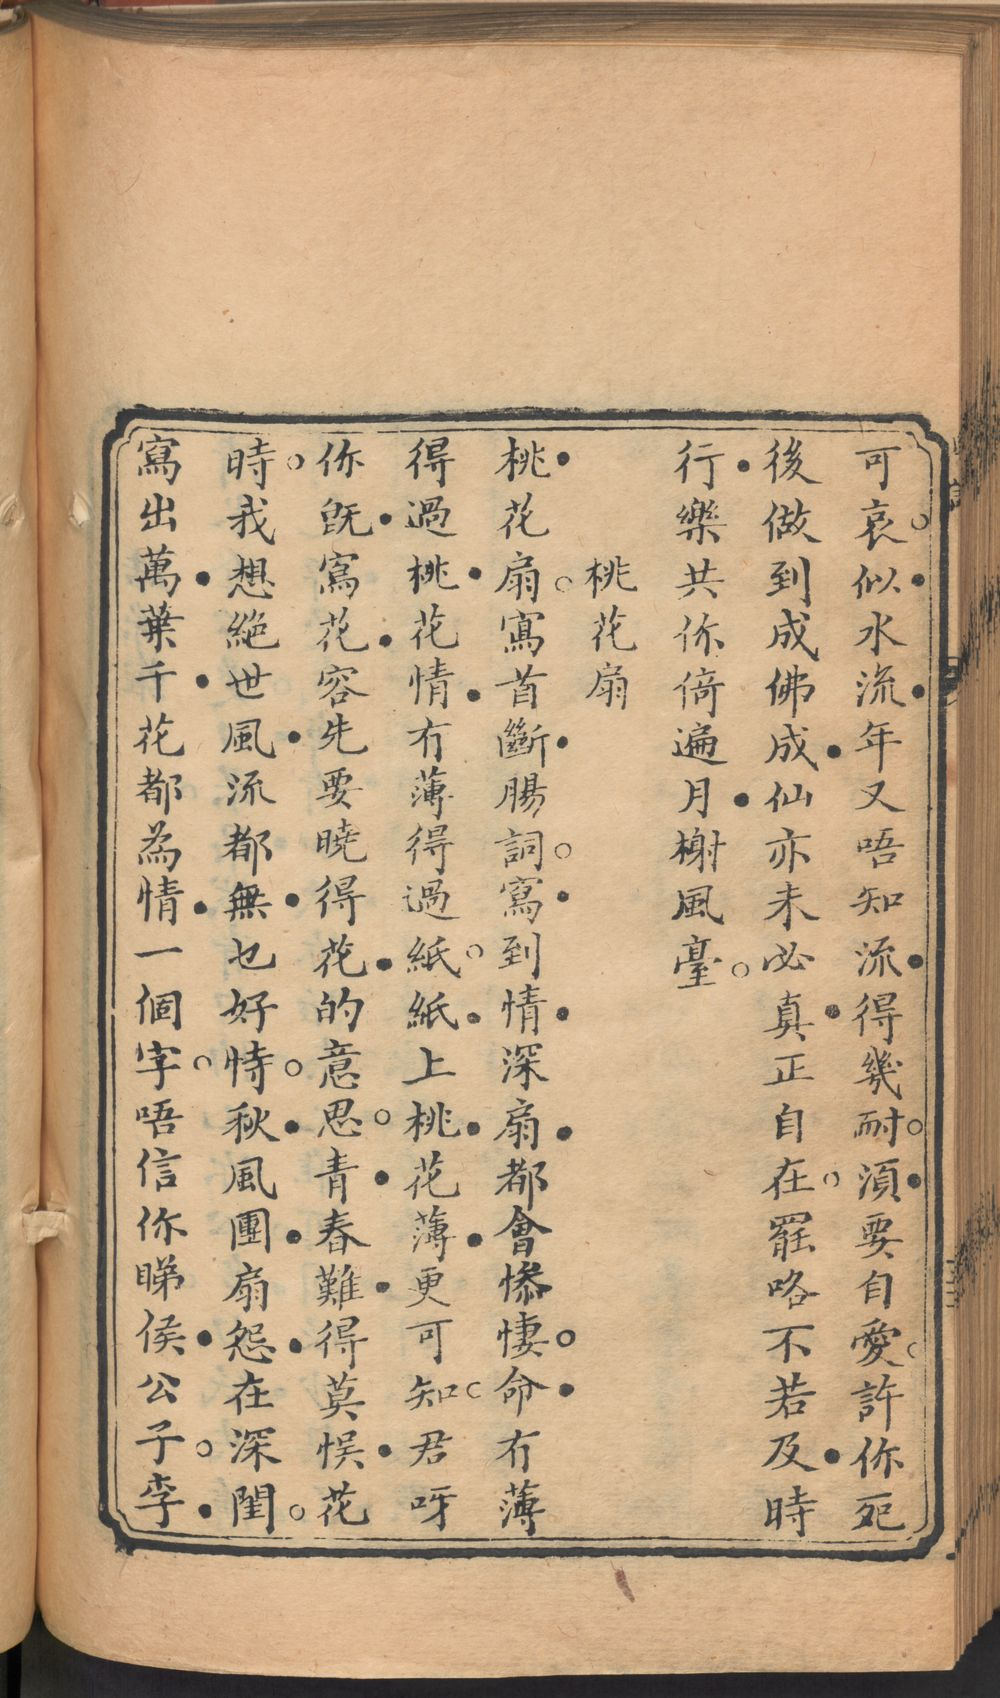 可哀似水流年又唔知流得幾耐須要自愛許你死
後做到成佛成仙亦未必真正自在罷咯不若及時
行樂共你倚遍月榭風臺
桃花扇
桃花扇寫首斷腸詞寫到情深扇都會慘悽命冇薄
得過桃花情冇薄得過紙紙上桃花薄更可知君呀
你旣寫花容先要曉得花的意思青春難得莫悞花
時我想絕世風流都無乜好恃秋風團扇怨在深閨
寫出萬葉千花都為情一個字唔信你睇侯公子李